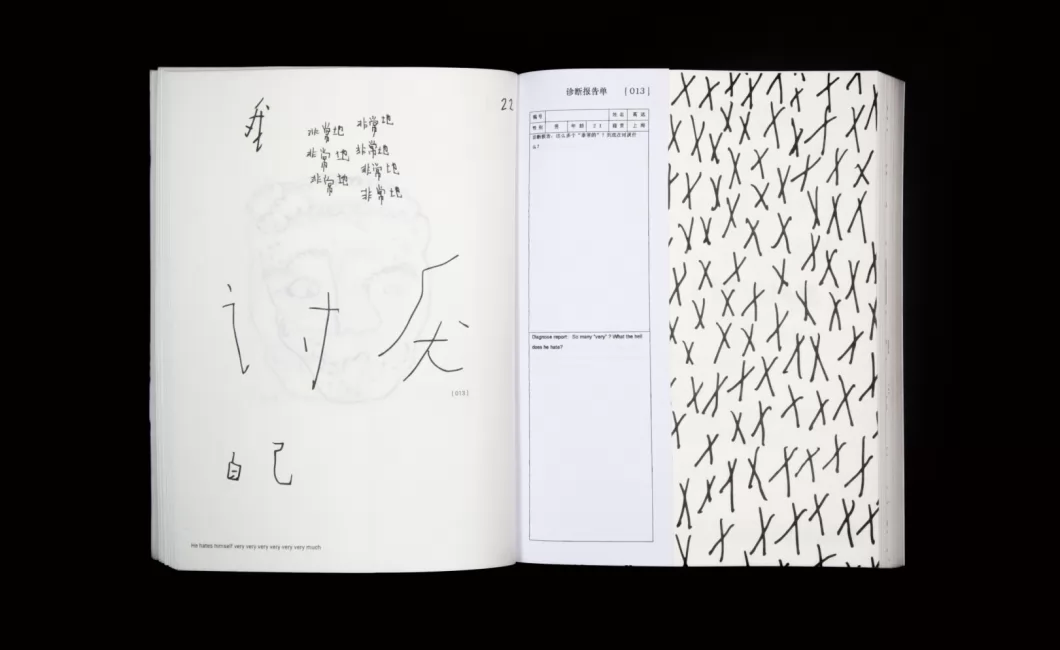 22
非常地 非常地
非常地 非常地
非常地 非常地
非常地
讨厌
[013]
自己
He hates himself very very very very very very much
诊断报告单 [013]
编号 姓名
性别 男 年龄 上海
诊断报告：这么多个“非常的”？到底在讨厌什
么？
Diagnose report: So many "very" ? What the hell
does he hate?